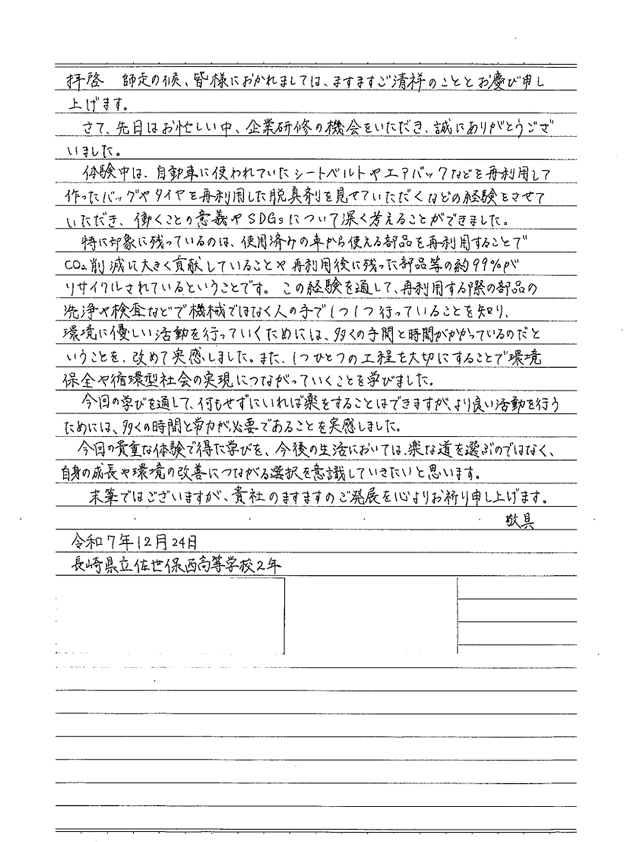 拝啓　師走の候、皆様におかれましては、ますますご清祥のこととお慶び申し
上げます。
さて、先日はお忙しい中、企業研修の機会をいただき、誠にありがとうござ
いました。
体験中は、自動車に使われていたシートベルトやエアバックなどを再利用して
作ったバッグやタイヤを再利用した脱臭剤を見せていただくなどの経験をさせて
いただき、働くことの意義やSDGsについて深く考えることができました。
特に印象に残っているのは、使用済みの車から使える部品を再利用することで
CO₂削減に大きく貢献していることや再利用後に残った部品等の約99%が
リサイクルされているということです。この経験を通して、再利用する際の部品の
洗浄や検査などで機械ではなく人の手で1つ1つ行っていることを知り、
環境に優しい活動を行っていくためには、多くの手間と時間がかかっているのだと
いうことを、改めて実感しました。また、1つひとつの工程を大切にすることで環境
保全や循環型社会の実現につながっていくことを学びました。
今回の学びを通して、何もせずにいれば楽をすることはできますが、より良い活動を行う
ためには、多くの時間と労力が必要であることを実感しました。
今回の貴重な体験で得た学びを、今後の生活においては、楽な道を選ぶのではなく、
自身の成長や環境の改善につながる選択を意識していきたいと思います。
末筆ではございますが、貴社のますますのご発展を心よりお祈り申し上げます。
敬具
令和7年12月24日
長崎県立佐世保西高等学校2年